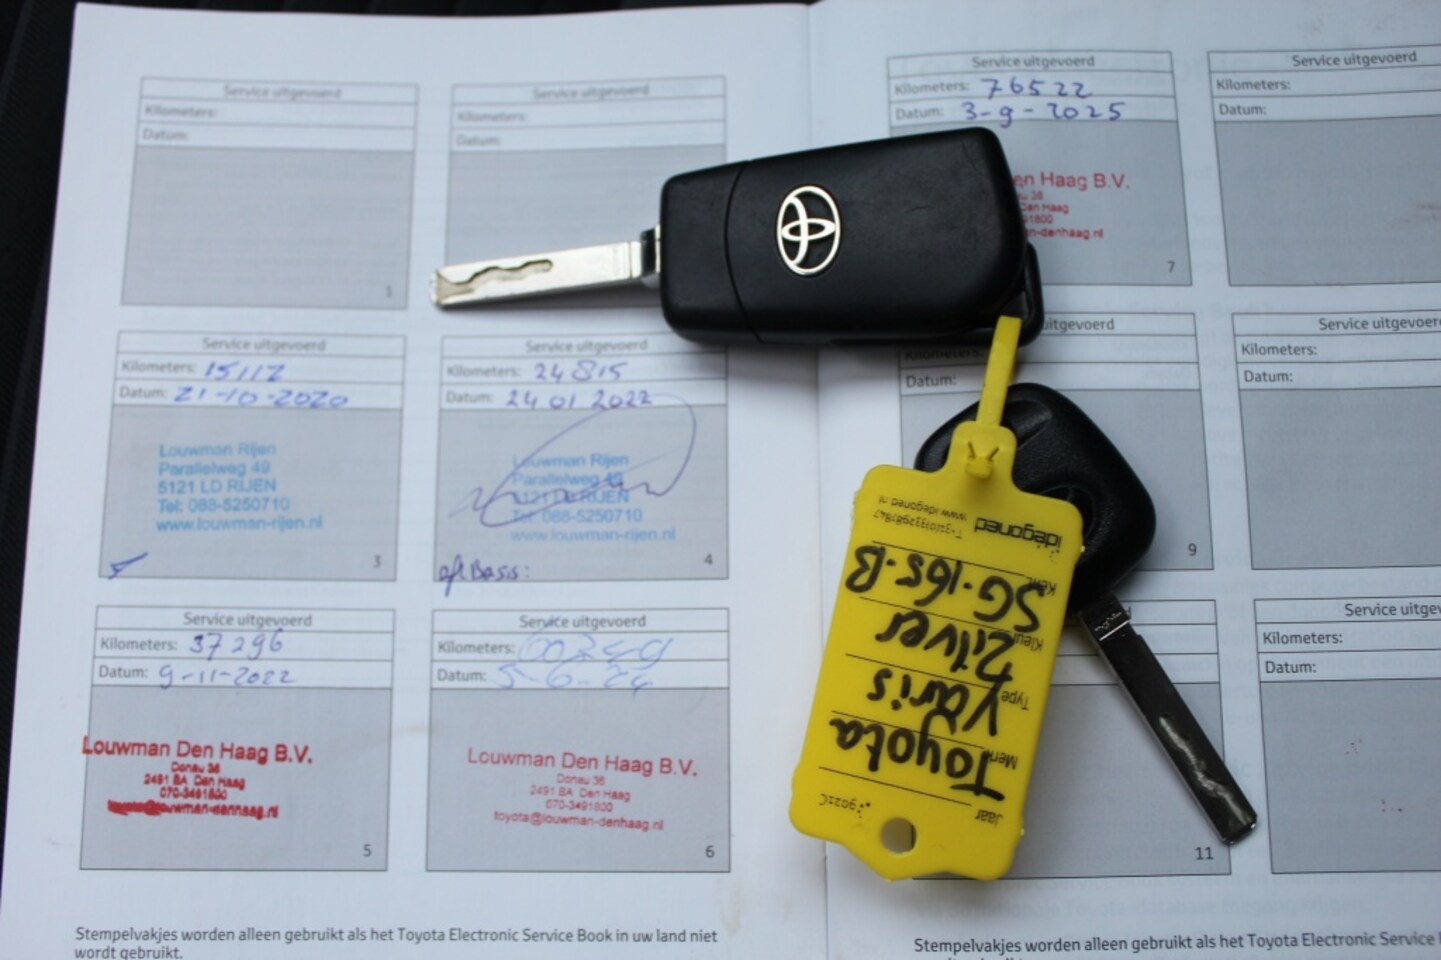 Service uitgevoerd
Kilometers:
Datum:
1
Service uitgevoerd
Kilometers:
Datum:
Service uitgevoerd
Kilometers: 15112
Datum: 21-10-2020
Louwman Rijen
Parallelweg 49
5121 LD RIJEN
Tel: 088-5250710
www.louwman-rijen.nl
3
Service uitgevoerd
Kilometers: 24815
Datum: 24 01 2022
Louwman Rijen
Parallelweg 49
5121 LD RIJEN
Tel: 088-5250710
www.louwman-rijen.nl
4
Service uitgevoerd
Kilometers: 37296
Datum: 9-11-2022
Louwman Den Haag B.V.
Donau 36
2491 BA Den Haag
070-3491800
toyota@louwman-denhaag.nl
5
Service uitgevoerd
Kilometers:
Datum: 5-6-24
Louwman Den Haag B.V.
Donau 36
2491 BA Den Haag
070-3491800
toyota@louwman-denhaag.nl
6
Stempelvakjes worden alleen gebruikt als het Toyota Electronic Service Book in uw land niet
wordt gebruikt.
Service uitgevoerd
Kilometers: 76522
Datum: 3-9-2025
en Haag B.V.
36
Den Haag
91800
n-denhaag.nl
7
Service uitgevoerd
Kilometers:
Datum:
uitgevoerd
Kilometers:
Datum:
9
Service uitgevoer
Kilometers:
Datum:
11
Service uitgev
Kilometers:
Datum:
Stempelvakjes worden alleen gebruikt als het Toyota Electronic Service
idegoned
www.idegoned.nl
Kent. SG-165-B
Kleur Zilver
Type Yaris
Merk Toyota
Jaar